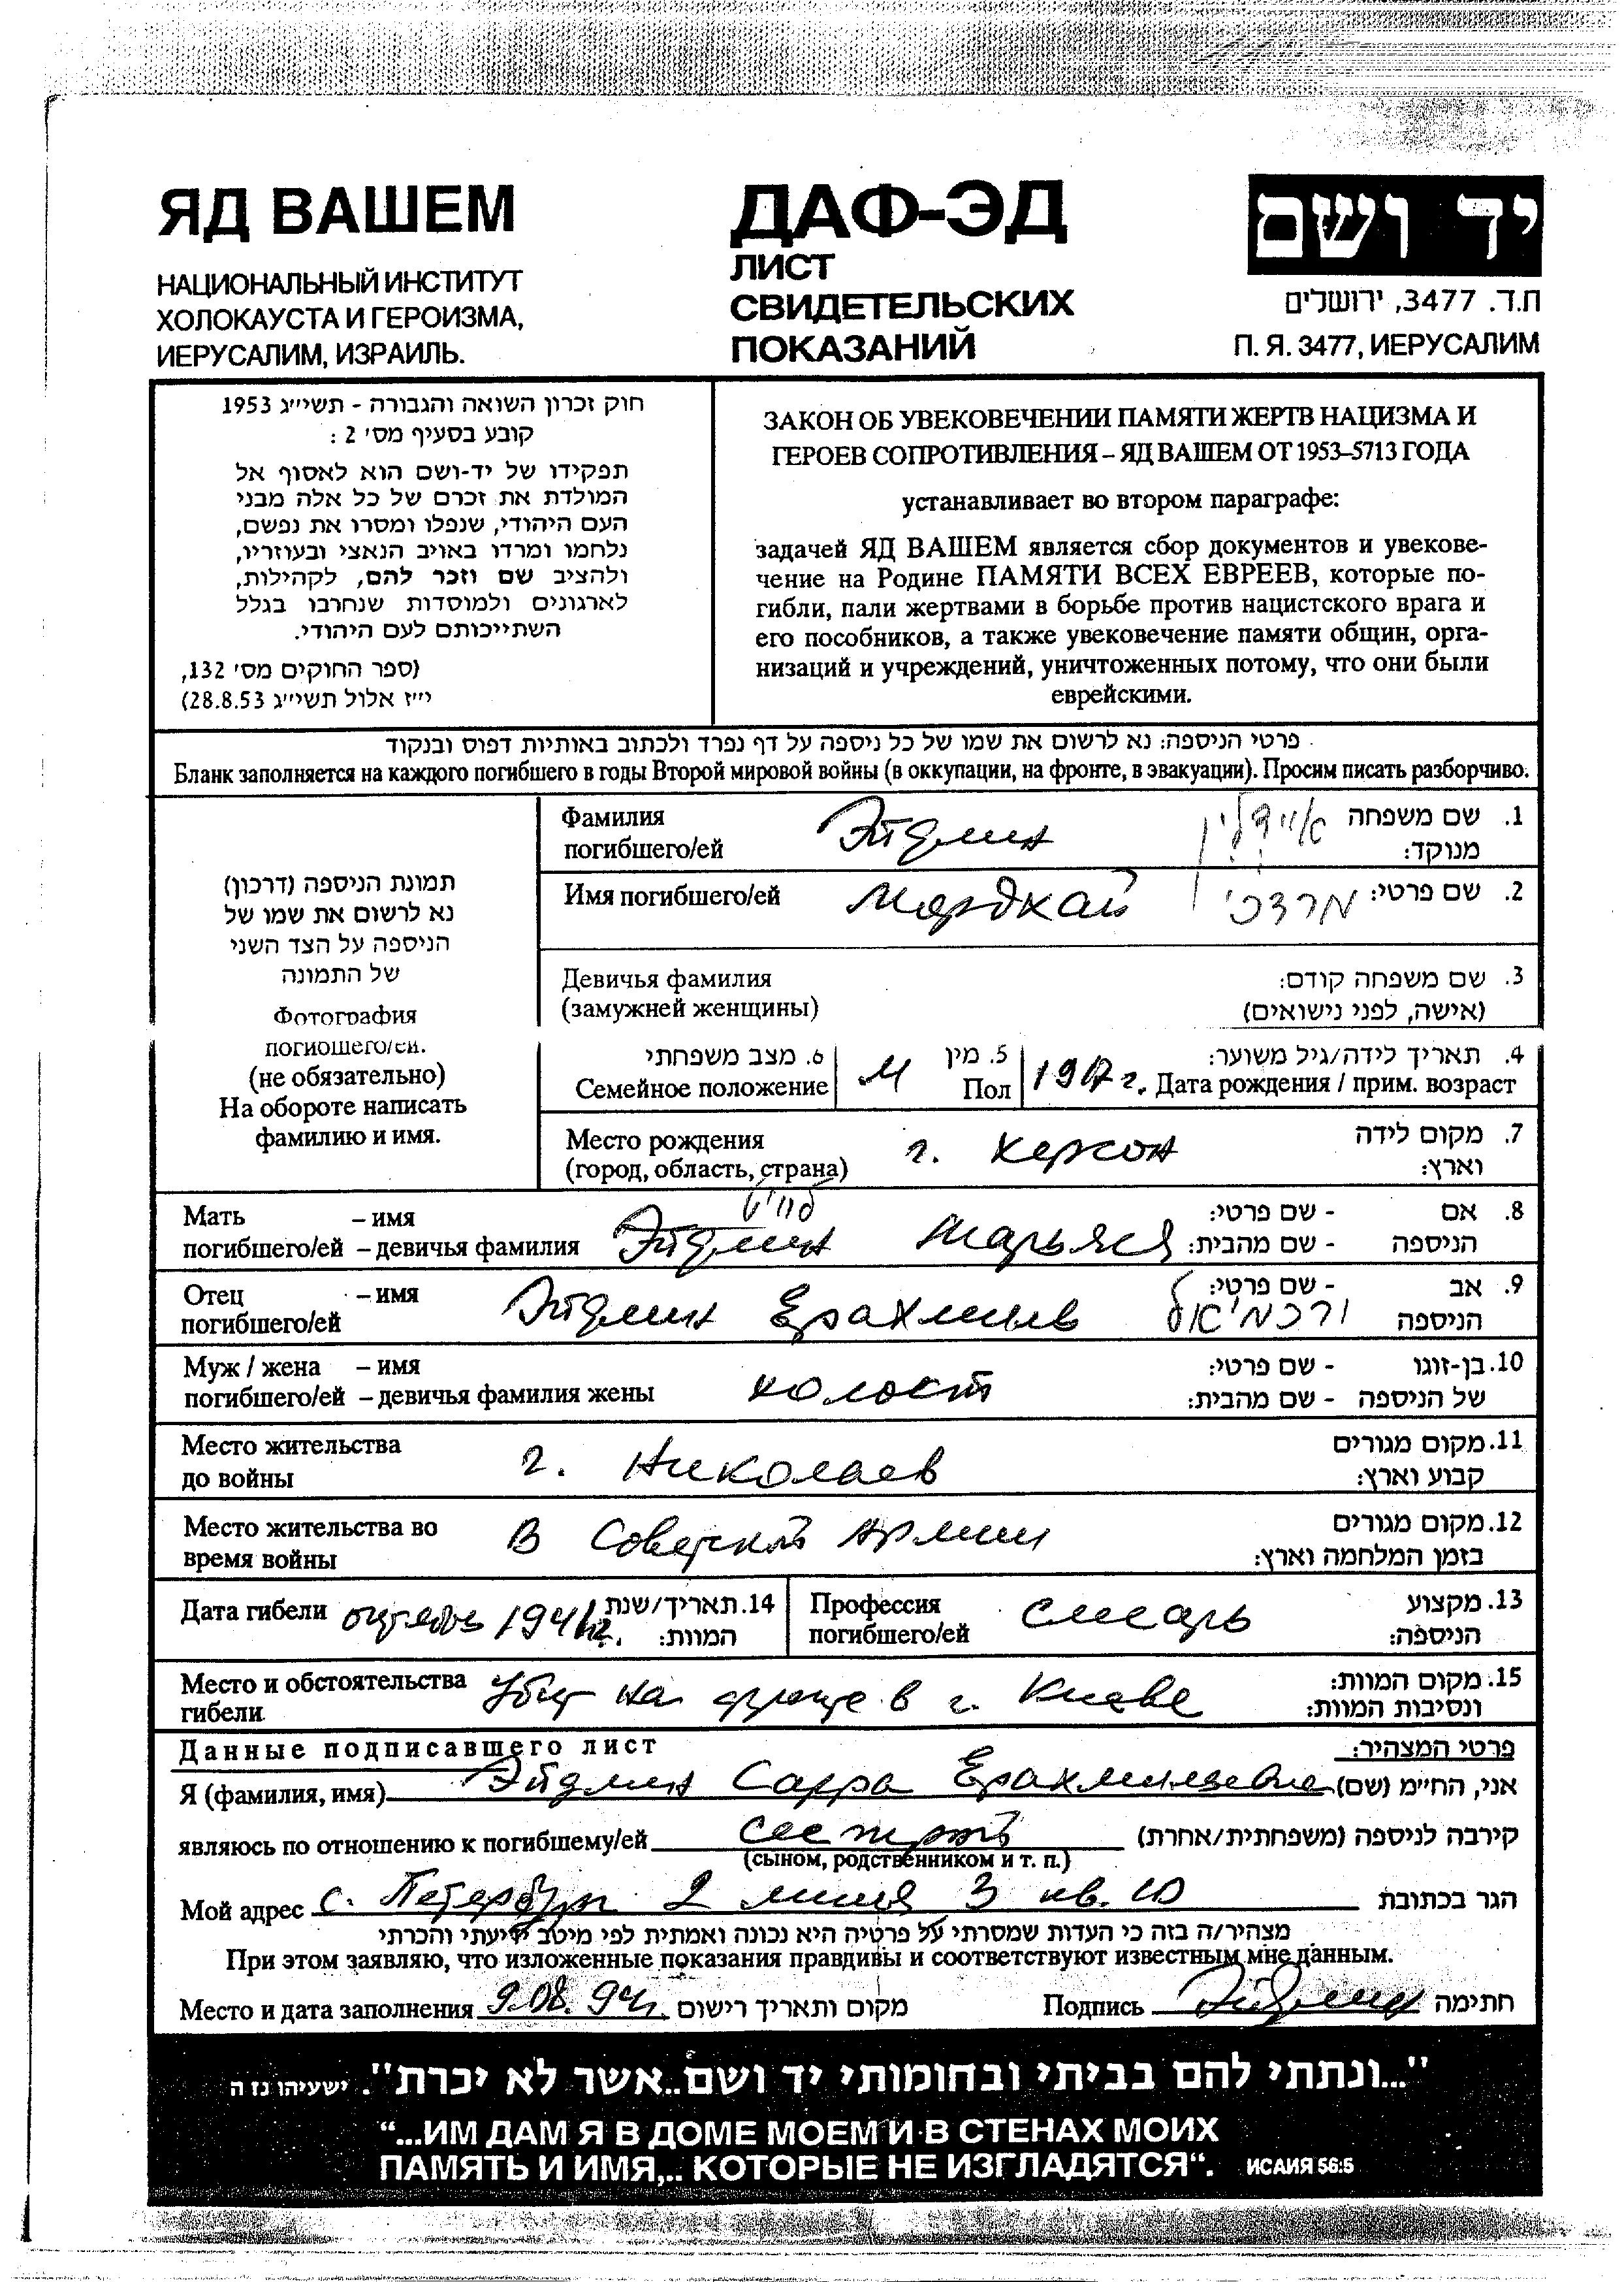 ЯД ВАШЕМ
НАЦИОНАЛЬНЫЙ ИНСТИТУТ
ХОЛОКАУСТА И ГЕРОИЗМА,
ИЕРУСАЛИМ, ИЗРАИЛЬ.
ДАФ-ЭД
ЛИСТ
СВИДЕТЕЛЬСКИХ
ПОКАЗАНИЙ
יד ושם
ת.ד. 3477, ירושלים
П. Я. 3477, ИЕРУСАЛИМ
חוק זכרון השואה והגבורה - תשי״ג 1953
קובע בסעיף מס׳ 2 :
תפקידו של יד-ושם הוא לאסוף אל
המולדת את זכרם של כל אלה מבני
העם היהודי, שנפלו ומסרו את נפשם,
נלחמו ומרדו באויב הנאצי ובעוזריו,
ולהציב שם וזכר להם, לקהילות,
לארגונים ולמוסדות שנחרבו בגלל
השתייכותם לעם היהודי.
(ספר החוקים מס׳ 132,
י״ז אלול תשי״ג 28.8.53)
ЗАКОН ОБ УВЕКОВЕЧЕНИИ ПАМЯТИ ЖЕРТВ НАЦИЗМА И
ГЕРОЕВ СОПРОТИВЛЕНИЯ – ЯД ВАШЕМ ОТ 1953–5713 ГОДА
устанавливает во втором параграфе:
задачей ЯД ВАШЕМ является сбор документов и увекове-
чение на Родине ПАМЯТИ ВСЕХ ЕВРЕЕВ, которые по-
гибли, пали жертвами в борьбе против нацистского врага и
его пособников, а также увековечение памяти общин, орга-
низаций и учреждений, уничтоженных потому, что они были
еврейскими.
פרטי הניספה: נא לרשום את שמו של כל ניספה על דף נפרד ולכתוב באותיות דפוס ובנקוד
Бланк заполняется на каждого погибшего в годы Второй мировой войны (в оккупации, на фронте, в эвакуации). Просим писать разборчиво.
תמונת הניספה (דרכון)
נא לרשום את שמו של
הניספה על הצד השני
של התמונה
Фотография
погибшего/ей.
(не обязательно)
На обороте написать
фамилию и имя.
Фамилия Эйдлин איידלין 1. שם משפחה
погибшего/ей מנוקד:
Имя погибшего/ей Мордкай מרדכי 2. שם פרטי:
Девичья фамилия 3. שם משפחה קודם:
(замужней женщины) (אישה, לפני נישואים)
6. מצב משפחתי 5. מין 4. תאריך לידה/גיל משוער:
Семейное положение М Пол 1917 г. Дата рождения / прим. возраст
Место рождения г. Херсон 7. מקום לידה
(город, область, страна) וארץ:
Мать – имя 8. אם - שם פרטי:
погибшего/ей – девичья фамилия Эйдлин Марьяся הניספה - שם מהבית:
Отец – имя Эйдлин Ерахмиль 9. אב - שם פרטי:
погибшего/ей ירכמיאל הניספה
Муж / жена – имя холост 10. בן-זוגו - שם פרטי:
погибшего/ей – девичья фамилия жены של הניספה - שם מהבית:
Место жительства г. Николаев 11. מקום מגורים
до войны קבוע וארץ:
Место жительства во В Советской Армии 12. מקום מגורים
время войны בזמן המלחמה וארץ:
Дата гибели октябрь 1941 г. 14. תאריך/שנת המוות:
Профессия слесарь 13. מקצוע
погибшего/ей הניספה:
Место и обстоятельства Убит на фронте в г. Киеве 15. מקום המוות:
гибели ונסיבות המוות:
Данные подписавшего лист פרטי המצהיר:
Я (фамилия, имя) Эйдлин Сарра Ерахмильевна אני, הח״מ (שם)
являюсь по отношению к погибшему/ей сестрой קירבה לניספה (משפחתית/אחרת)
(сыном, родственником и т. п.)
Мой адрес С. Петербург 2 линия 3 кв. 10 הגר בכתובת
מצהיר/ה בזה כי העדות שמסרתי על פרטיה היא נכונה ואמתית לפי מיטב ידיעתי והכרתי
При этом заявляю, что изложенные показания правдивы и соответствуют известным мне данным.
Место и дата заполнения 9.08.94г. מקום ותאריך רישום Подпись Эйдлин חתימה
״...ונתתי להם בביתי ובחומותי יד ושם..אשר לא יכרת״. ישעיהו נז ה
“...ИМ ДАМ Я В ДОМЕ МОЕМ И В СТЕНАХ МОИХ
ПАМЯТЬ И ИМЯ,.. КОТОРЫЕ НЕ ИЗГЛАДЯТСЯ“. ИСАИЯ 56:5